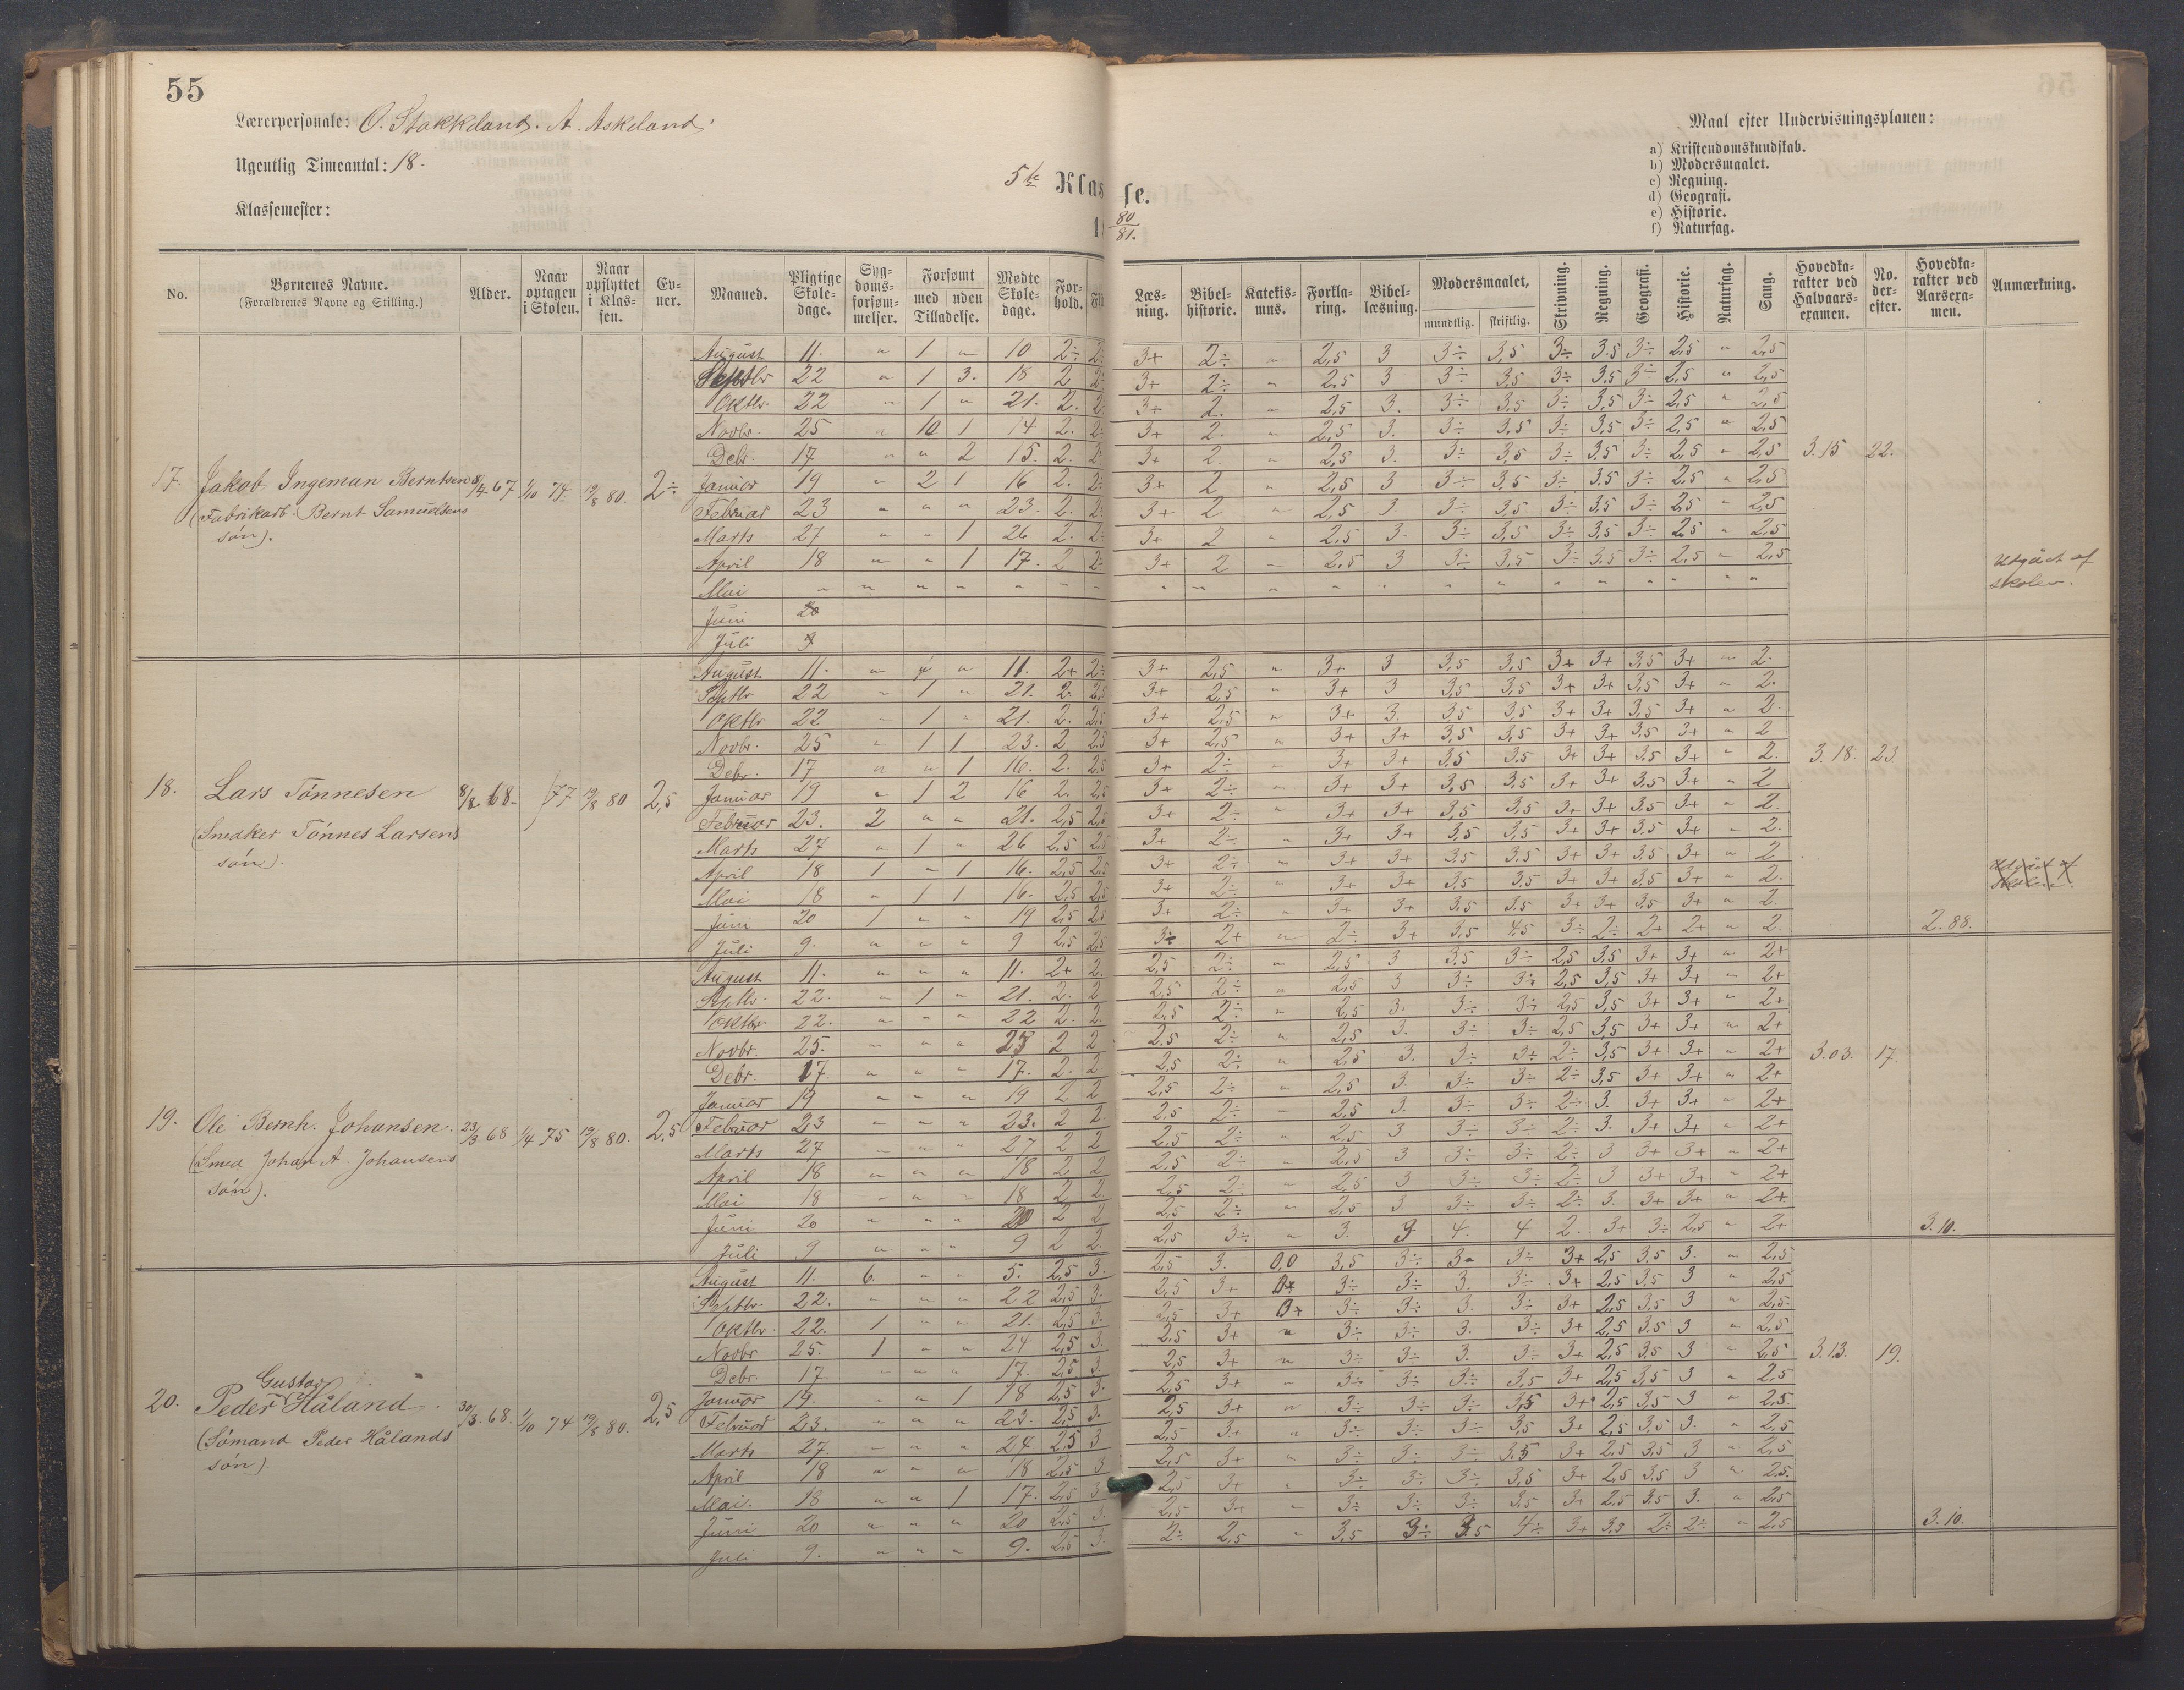 55
Lærerpersonale: O. Stokkeland. A. Askeland.
Ugentlig Timeantal: 18.
Klassemester:
5te Klasse.
80/81.
Maal efter Undervisningsplanen:
a) Kristendomskundskab.
b) Modersmaalet.
c) Regning.
d) Geografi.
e) Historie.
f) Naturfag.
No. Børnenes Navne. (Forældrenes Navne og Stilling.) Alder. Naar optagen i Skolen. Naar opflyttet i Klassen. Evner. Maaned. Pligtige Skoledage. Sygdomsforsømmelser. Forsømt med uden Tilladelse. Mødte Skoledage. Forhold. Læsning. Bibelhistorie. Katekismus. Forklaring. Bibellæsning. Modersmaalet, mundtlig. skriftlig. Skrivning. Regning. Geografi. Historie. Naturfag. Sang. Hovedkarakter ved Halvaarsexamen. No. derefter. Hovedkarakter ved Aarsexamen. Anmærkning.
August 11. " 1 " 10 2÷ 3+ 2÷ " 2,5 3 3÷ 3,5 3÷ 3,5 3÷ 2,5 " 2,5
Septbr 22 " 1 3. 18 2 3+ 2÷ " 2,5 3 3÷ 3,5 3÷ 3,5 3÷ 2,5 " 2,5
Oktbr. 22 " 1 " 21. 2. 3+ 2. " 2,5 3. 3÷ 3,5 3÷ 3,5 3÷ 2,5 " 2,5
Novbr. 25 " 10 1 14 2. 3+ 2. " 2,5 3. 3÷ 3,5 3÷ 3,5 3÷ 2,5 " 2,5
Debr. 17 " " 2 15. 2. 3+ 2. " 2,5 3. 3÷ 3,5 3÷ 3,5 3÷ 2,5 " 2,5 3.15 22.
17. Jakob Ingeman Berntsen 67 1/10 74. 19/8 80. 2÷ Januar 19 " 2 1 16 2. 3+ 2 " 2,5 3 3÷ 3,5 3÷ 3,5 3÷ 2,5 " 2,5
(Fabrikarb. Bernt Samuelsens Februar 23 " " " 23. 2. 3+ 2 " 2,5 3. 3÷ 3,5 3÷ 3,5 3÷ 2,5 " 2,5
søn). Marts 27 " " 1 26 2. 3+ 2 " 2,5 3. 3÷ 3,5 3÷ 3,5 3÷ 2,5 " 2,5
April 18 " " 1 17. 2 3+ 2 " 2,5 3 3÷ 3,5 3÷ 3,5 3÷ 2,5 " 2,5 Udgået af
Mai " " " " " " " skolen.
Juni 20
Juli 9
August 11. " " 11. 2+ 3+ 2,5 " 3+ 3 3,5 3,5 3+ 3+ 3,5 3+ " 2.
Septbr. 22 " 1 " 21. 2. 2,5 3+ 2,5 " 3+ 3 3,5 3,5 3+ 3+ 3,5 3+ " 2.
Oktbr 22 " 1 " 21. 2. 2,5 3+ 2,5 " 3+ 3. 3,5 3,5 3+ 3+ 3,5 3+ " 2.
Novbr. 25 " 1 1 23. 2 2,5 3+ 2,5 " 3+ 3+ 3,5 3,5 3+ 3+ 3,5 3+ " 2
Debr. 17 " " 1 16. 2. 2,5 3+ 2÷ " 3+ 3+ 3,5 3,5 3+ 3+ 3,5 3+ " 2. 3.18. 23.
18. Lars Tønnesen 8/8 68. 77 19/8 80 2,5 Januar 19 " 1 2 16 2. 2,5 3+ 2÷ " 3+ 3+ 3,5 3,5 3+ 3+ 3,5 3+ " 2
(Snedker Tønnes Larsens Februar 23. 2 " " 21. 2,5 2,5 3+ 2÷ " 3+ 3+ 3,5 3,5 3+ 3+ 3,5 3+ " 2.
søn). Marts 27 " 1 " 26 2,5 2,5 3+ 2÷ " 3+ 3+ 3,5 3,5 3+ 3+ 3,5 3+ " 2.
April 18 1 " 1 16. 2,5 2,5 3+ 2÷ " 3+ 3+ 3,5 3,5 3+ 3+ 3,5 3+ " 2
Mai 18 " 1 1 16. 2,5 2,5 3+ 2÷ " 3+ 3+ 3,5 3,5 3+ 3+ 3,5 3+ " 2.
Juni 20 1 " " 19 2,5 2,5 3+ 2÷ " 3+ 3+ 3,5 3,5 3+ 3+ 3,5 3+ " 2.
Juli 9. " " " 9 2,5 2,5 3÷ 2+ " 2÷ 3+ 3,5 4,5 3÷ 2÷ 2+ 2+ " 2. 2.88.
August 11. " " " 11. 2+ 2. 2,5 2÷ " 2,5 3 3,5 3÷ 2,5 3,5 3+ 3+ " 2+
Septbr. 22. " 1 " 21. 2. 2 2,5 2÷ " 2,5 3 3÷ 3÷ 2,5 3,5 3+ 3+ " 2+
Oktbr. 22. " " " 22 2. 2. 2,5 2÷ " 2,5 3. 3÷ 3÷ 2,5 3,5 3+ 3+ " 2+
Novbr. 25. " " " 25 2 2 2,5 2÷ " 2,5 3. 3÷ 3÷ 2,5 3,5 3+ 3+ " 2+
Debr. 17. " " " 17. 2. 2 2,5 2÷ " 2,5 3. 3÷ 3÷ 2÷ 3,5 3+ 3+ " 2+ 3.03. 17.
Januar 19 " " " 19 2 2 2,5 2÷ " 2,5 3. 3÷ 3÷ 2÷ 3,5 3+ 3+ " 2+
19. Ole Bernh. Johansen. 23/3 68 1/4 75 19/8 80. 2,5 Februar 23 " " " 23. 2 2. 2,5 2÷ " 2,5 3. 3÷ 3÷ 2÷ 3. 3+ 3+ " 2+
(Smed Johan A. Johansens Marts 27 " " " 27 2 2 2,5 2÷ " 2,5 3. 3÷ 3÷ 2÷ 3. 3+ 3+ " 2+
søn). April 18 " " " 18 2 2 2,5 2÷ " 2,5 3 3÷ 3÷ 2÷ 3 3+ 3+ " 2+
Mai 18 " " " 18 2 2. 2,5 2÷ " 2,5 3 3÷ 3÷ 2÷ 3 3+ 3+ " 2+
Juni 20 " " " 20 2 2 2,5 2÷ " 2,5 3. 3÷ 3÷ 2÷ 3. 3+ 3+ " 2+
Juli 9 " " " 9 2 2. 2,5 3÷ " 3. 3 4. 4 2. 3+ 3÷ 2,5 " 2+ 3.10.
August 11. 6. " " 5. 2,5 3. 2,5 3. 0,0 3,5 3÷ 3 3÷ 3+ 2,5 3,5 3. " 2,5
Septbr. 22. " " " 22 2,5 3. 2,5 3+ 3÷ 3÷ 3. 3÷ 3+ 2,5 3,5 3 " 2,5
Oktbr. 22. 1 " " 21. 2,5 3. 2,5 3+ 3÷ 3÷ 3. 3÷ 3+ 2,5 3,5 3 " 2,5.
Novbr 25. 1 " " 24 2,5 3. 2,5 3+ " 3÷ 3÷ 3. 3÷ 3+ 2,5 3,5 3 " 2,5
Debr. 17. " " " 17. 2,5 3. 2,5 3+ " 3÷ 3÷ 3. 3÷ 3+ 2,5 3,5 3 " 2,5 3.13. 19.
Gustav
20. Peder Håland. 30/3 68. 1/10 74 19/8 80. 2,5 Januar 19. " " 1 18 2,5 3. 2,5 3+ " 3÷ 3÷ 3÷ 3,5 3+ 2,5 3,5 3 " 2,5
(Sømand Peder Hålands Februar 23. " " " 23. 2,5 3. 2,5 3+ " 3÷ 3÷ 3÷ 3,5 3+ 2,5 3,5 3 " 2,5.
søn). Marts 27. " " " 27. 2,5 3 2,5 3+ " 3÷ 3÷ 3÷ 3,5 3+ 2,5 3,5 3. " 2,5
April 18 " " " 18 2,5 3 2,5 3+ " 3÷ 3÷ 3÷ 3,5 3+ 2,5 3,5 3 " 2,5
Mai. 18 " " 1 17. 2,5 3 2,5 3+ " 3÷ 3÷ 3÷ 3,5 3+ 2,5 3,5 3 " 2,5.
Juni 20 " " " 20 2,5 3. 2,5 3+ " 3÷ 3÷ 3÷ 3,5 3+ 2,5 3,5 3. " 2,5
Juli 9. " " " 9. 2,5 3. 2÷ 2,5 " 3,5 3÷ 3,5 4÷ 3+ 3,5 2÷ 2÷ " 2,5 3.10.